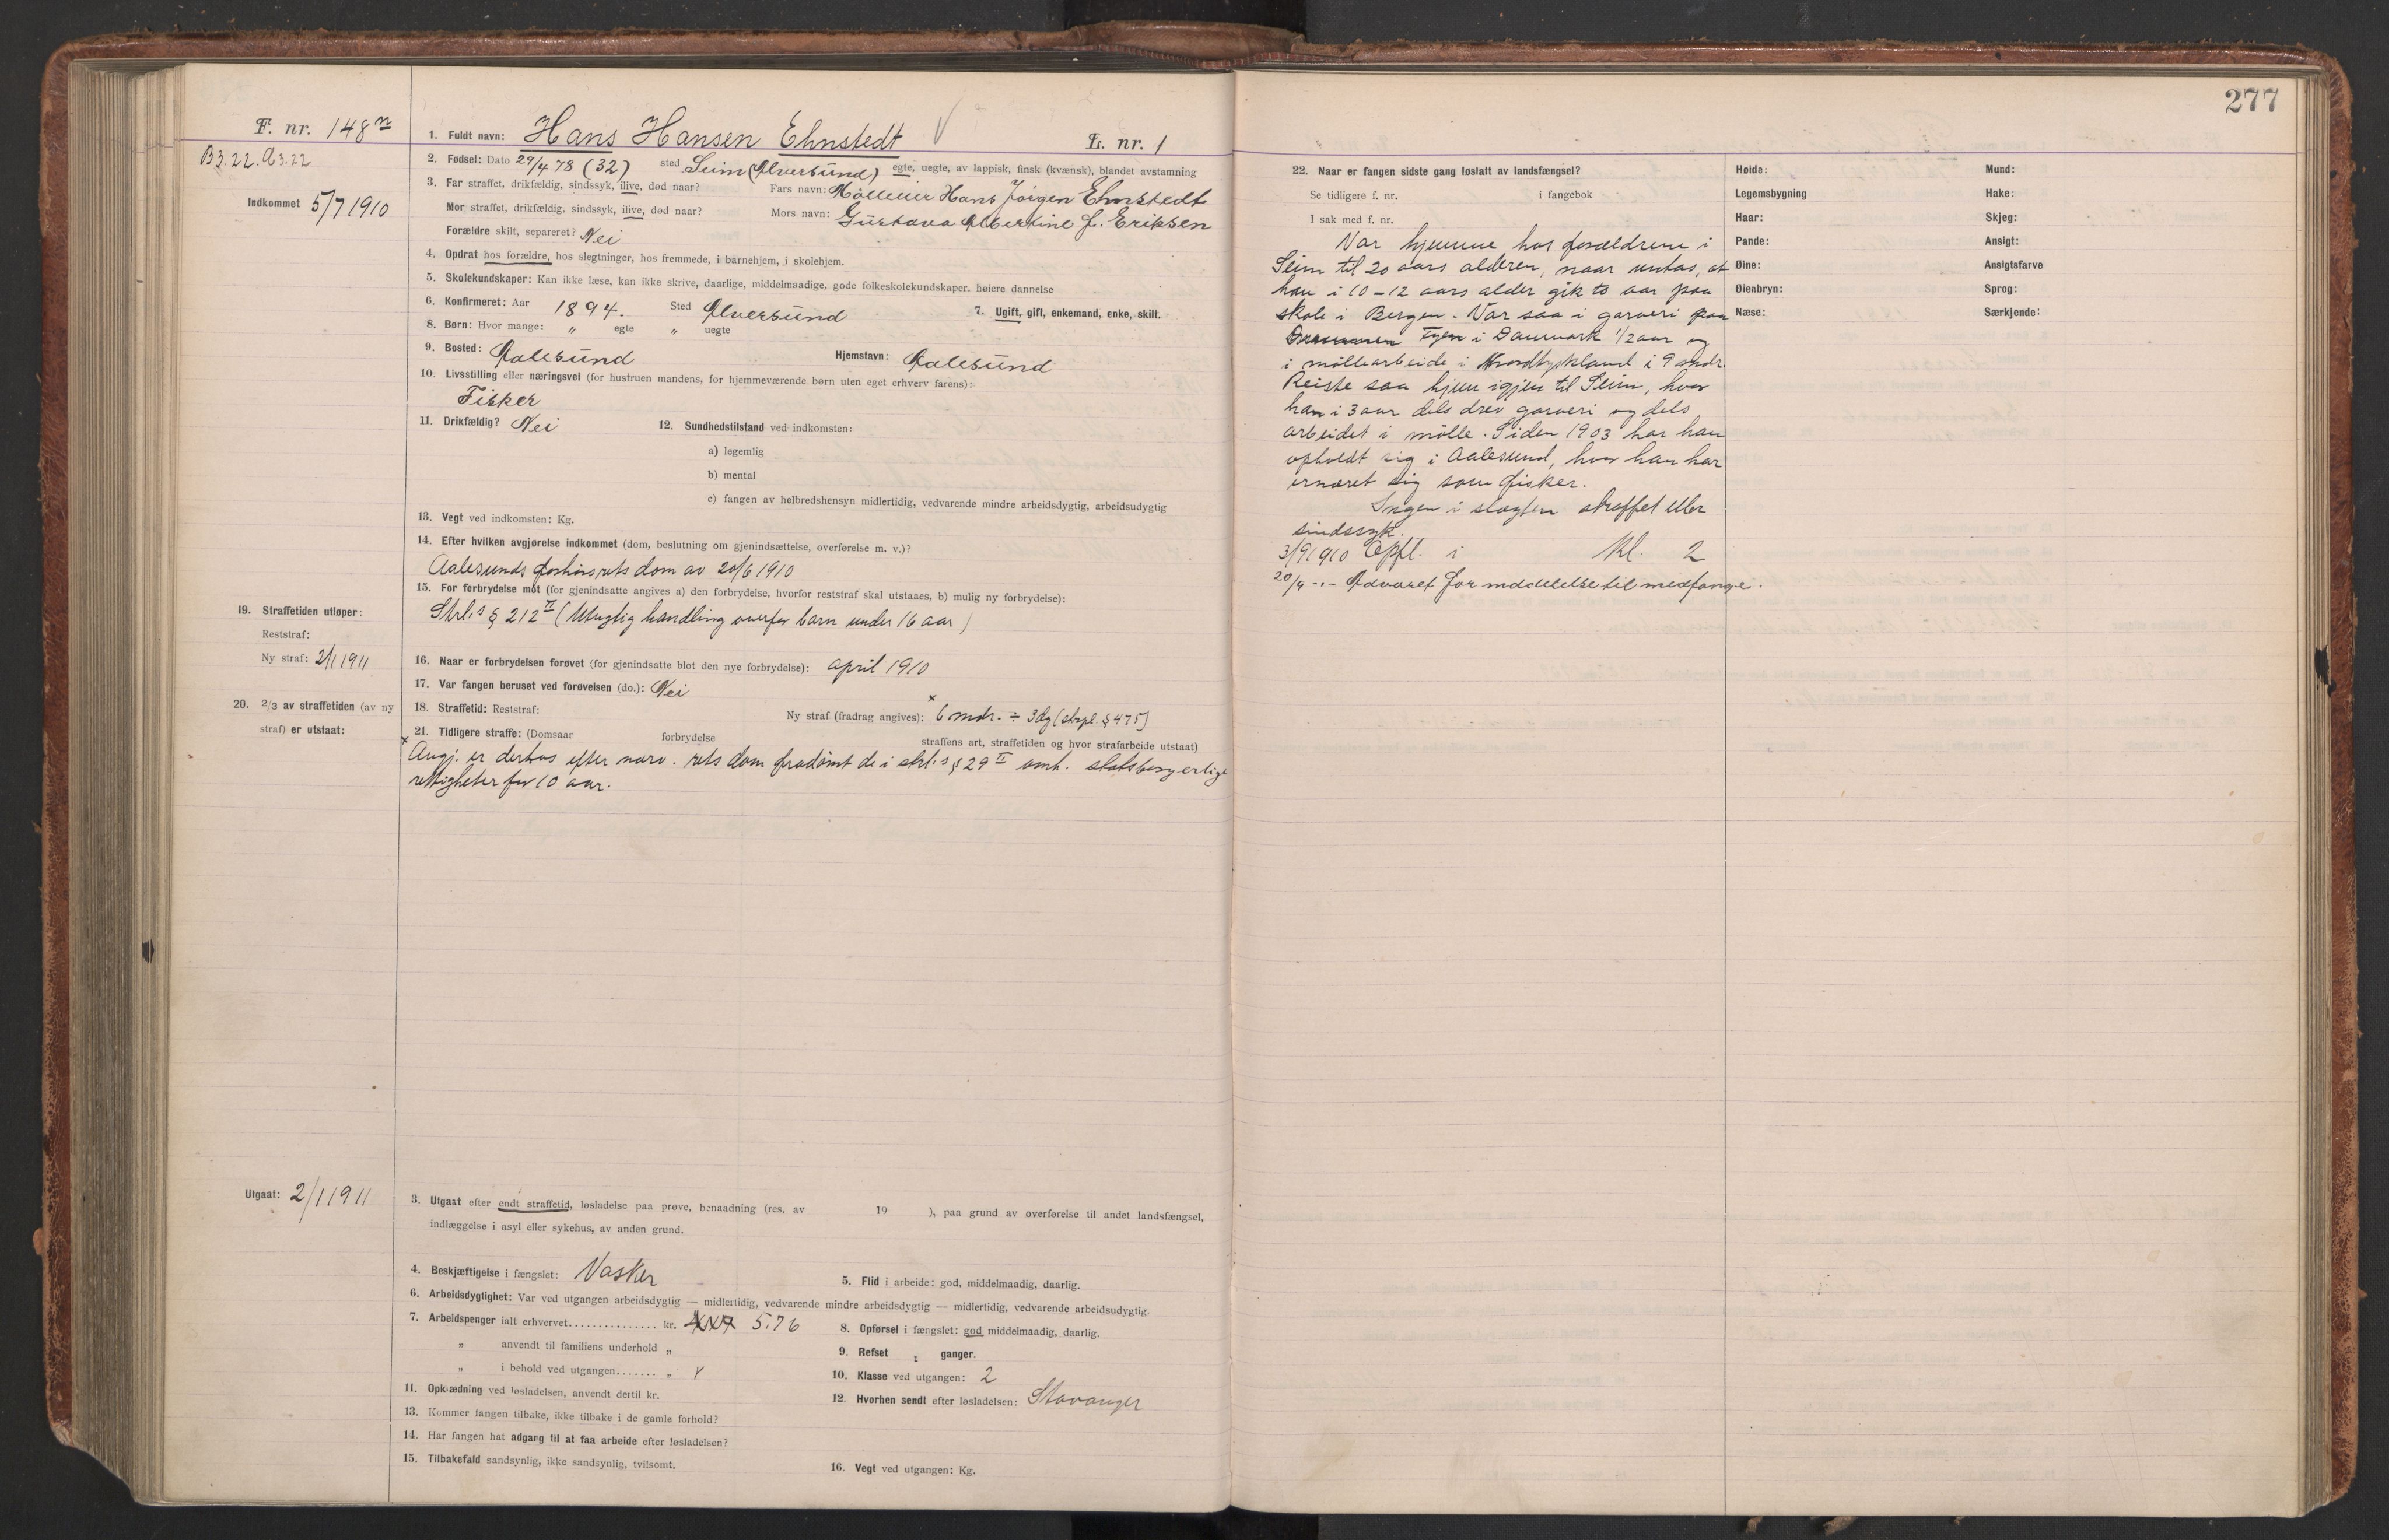 277
F. nr. 148
B3.22. A3.22
Indkommet 5/7 1910
1. Fuldt navn: Hans Hansen Ehnstedt L. nr. 1
2. Fødsel: Dato 29/4 78 (32) sted Seim (Alversund) egte, uegte, av lappisk, finsk (kvænsk), blandet avstamning
3. Far straffet, drikfældig, sindssyk, ilive, død naar? Fars navn: Hans Jörgen Ehnstedt
Mor straffet, drikfældig, sindssyk, ilive, død naar? Mors navn: Gustava Albertine J. Eriksen
Forældre skilt, separeret? Nei
4. Opdrat hos forældre, hos slegtninger, hos fremmede, i barnehjem, i skolehjem.
5. Skolekundskaper: Kan ikke læse, kan ikke skrive, daarlige, middelmaadige, gode folkeskolekundskaper. høiere dannelse
6. Konfirmeret: Aar 1894. Sted Alversund 7. Ugift, gift, enkemand, enke, skilt.
8. Børn: Hvor mange: " egte " uegte
9. Bosted: Aalesund Hjemstavn: Aalesund
10. Livsstilling eller næringsvei (for hustruen mandens, for hjemmeværende børn uten eget erhverv farens):
Fisker
11. Drikfældig? Nei 12. Sundhedstilstand ved indkomsten:
a) legemlig
b) mental
c) fangen av helbredshensyn midlertidig, vedvarende mindre arbeidsdygtig, arbeidsudygtig
13. Vegt ved indkomsten: Kg.
14. Efter hvilken avgjørelse indkommet (dom, beslutning om gjenindsættelse, overførelse m. v.)?
Aalesunds forhörsrets dom av 20/6 1910
15. For forbrydelse mot (for gjenindsatte angives a) den forbrydelse, hvorfor reststraf skal utstaaes, b) mulig ny forbrydelse):
Strl.s § 212 II (Utugtig handling overfor barn under 16 aar)
19. Straffetiden utløper:
Reststraf:
Ny straf: 2/1 1911
16. Naar er forbrydelsen forøvet (for gjenindsatte blot den nye forbrydelse): april 1910
17. Var fangen beruset ved forøvelsen (do.): Nei
20. 2/3 av straffetiden (av ny
straf) er utstaat:
18. Straffetid: Reststraf: Ny straf (fradrag angives): x 6 mdr. ÷ 3 dg (strpl. § 475)
21. Tidligere straffe: (Domsaar forbrydelse straffens art, straffetiden og hvor strafarbeide utstaat)
x Angj. er derhos efter nærv. rets dom fradömt de i strl.s § 29 II omh. statsborgerlige
rettigheter for 10 aar.
Utgaat: 2/1 1911
3. Utgaat efter endt straffetid, løsladelse paa prøve, benaadning (res. av 19 ), paa grund av overførelse til andet landsfængsel,
indlæggelse i asyl eller sykehus, av anden grund.
4. Beskjæftigelse i fængslet: Vasker 5. Flid i arbeide: god, middelmaadig, daarlig.
6. Arbeidsdygtighet: Var ved utgangen arbeidsdygtig — midlertidig, vedvarende mindre arbeidsdygtig — midlertidig, vedvarende arbeidsudygtig.
7. Arbeidspenger ialt erhvervet............... kr. 5.76 8. Opførsel i fængslet: god middelmaadig, daarlig.
" anvendt til familiens underhold " 9. Refset ganger.
" i behold ved utgangen....... " 10. Klasse ved utgangen: 2
11. Opklædning ved løsladelsen, anvendt dertil kr. 12. Hvorhen sendt efter løsladelsen: Stavanger
13. Kommer fangen tilbake, ikke tilbake i de gamle forhold?
14. Har fangen hat adgang til at faa arbeide efter løsladelsen?
15. Tilbakefald sandsynlig, ikke sandsynlig, tvilsomt. 16. Vegt ved utgangen: Kg.
22. Naar er fangen sidste gang løslatt av landsfængsel?
Se tidligere f. nr. i fangebok
I sak med f. nr.
Var hjemme hos forældrene i
Seim til 20 aars alderen, naar untas, at
han i 10-12 aars alder gik to aar paa
skole i Bergen. Var saa i garveri paa
Fyen i Danmark 1/2 aar og
i möllearbeide i Nordtyskland i 9 mdr.
Reiste saa hjem igjen til Seim, hvor
han i 3 aar dels drev garveri og dels
arbeidet i mölle. Siden 1903 har han
opholdt sig i Aalesund, hvor han har
ernæret sig som fisker.
Ingen i slegten straffet eller
sindssyk.
3/9 1910 Opfl. i Kl. 2
20/9 -"- Advaret for meddelelse til medfange.
Høide: Mund:
Legemsbygning Hake:
Haar: Skjeg:
Pande: Ansigt:
Øine: Ansigtsfarve
Øienbryn: Sprog:
Næse: Særkjende: